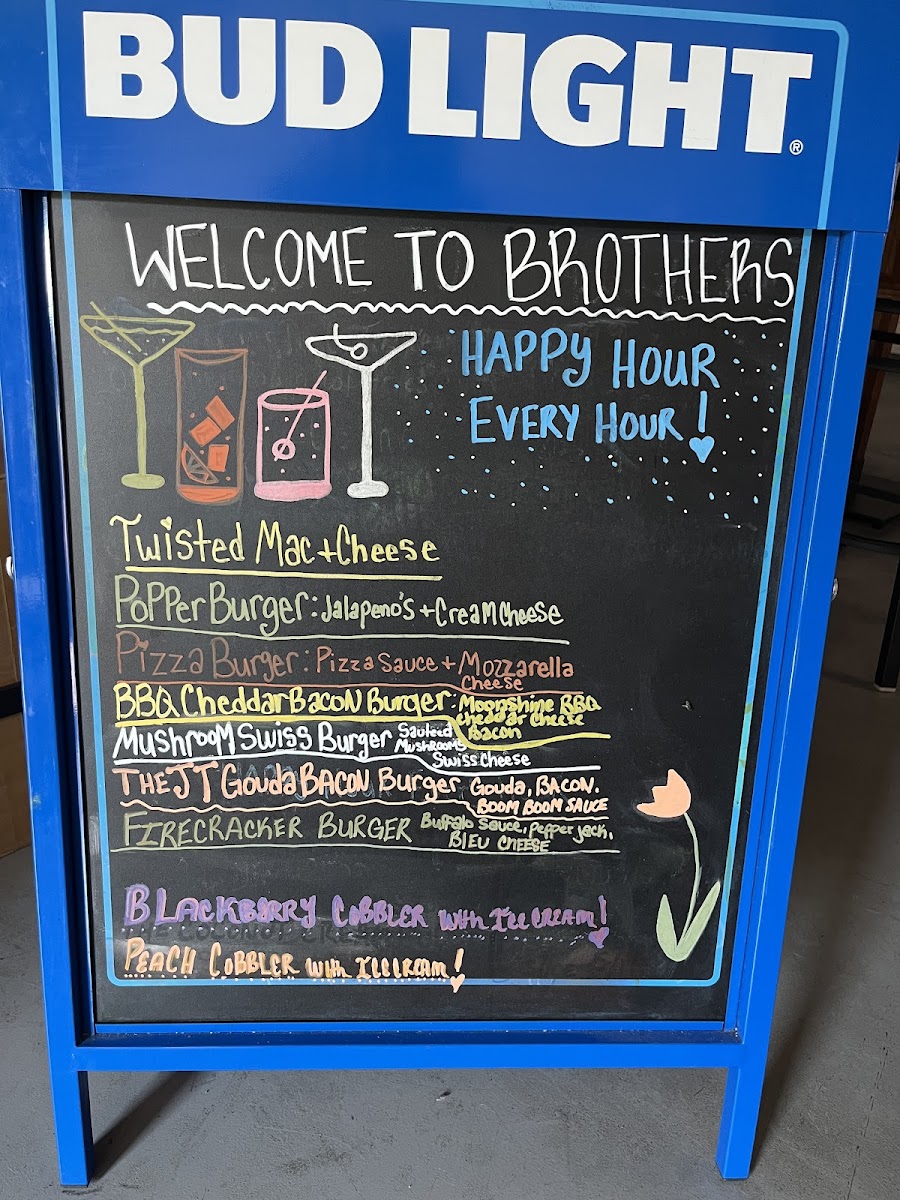 BUD LIGHT®
WELCOME TO BROTHERS
HAPPY HOUR
EVERY HOUR!
Twisted Mac+Cheese
Popper Burger: Jalapeno's + Cream Cheese
Pizza Burger: Pizza Sauce + Mozzarella
Cheese
BBQ Cheddar Bacon Burger: Moonshine BBQ
Cheddar Cheese
Bacon
Mushroom Swiss Burger Sauteed
Mushrooms
Swiss Cheese
THE JT Gouda BACON Burger Gouda, BACON.
BOOM BOOM SAUCE
FIRECRACKER BURGER Buffalo Sauce, Pepper jack,
BlEU CHEESE
BLACKBERRY COBBLER with ICE CREAM!
PEACH COBBLER with ICE CREAM!